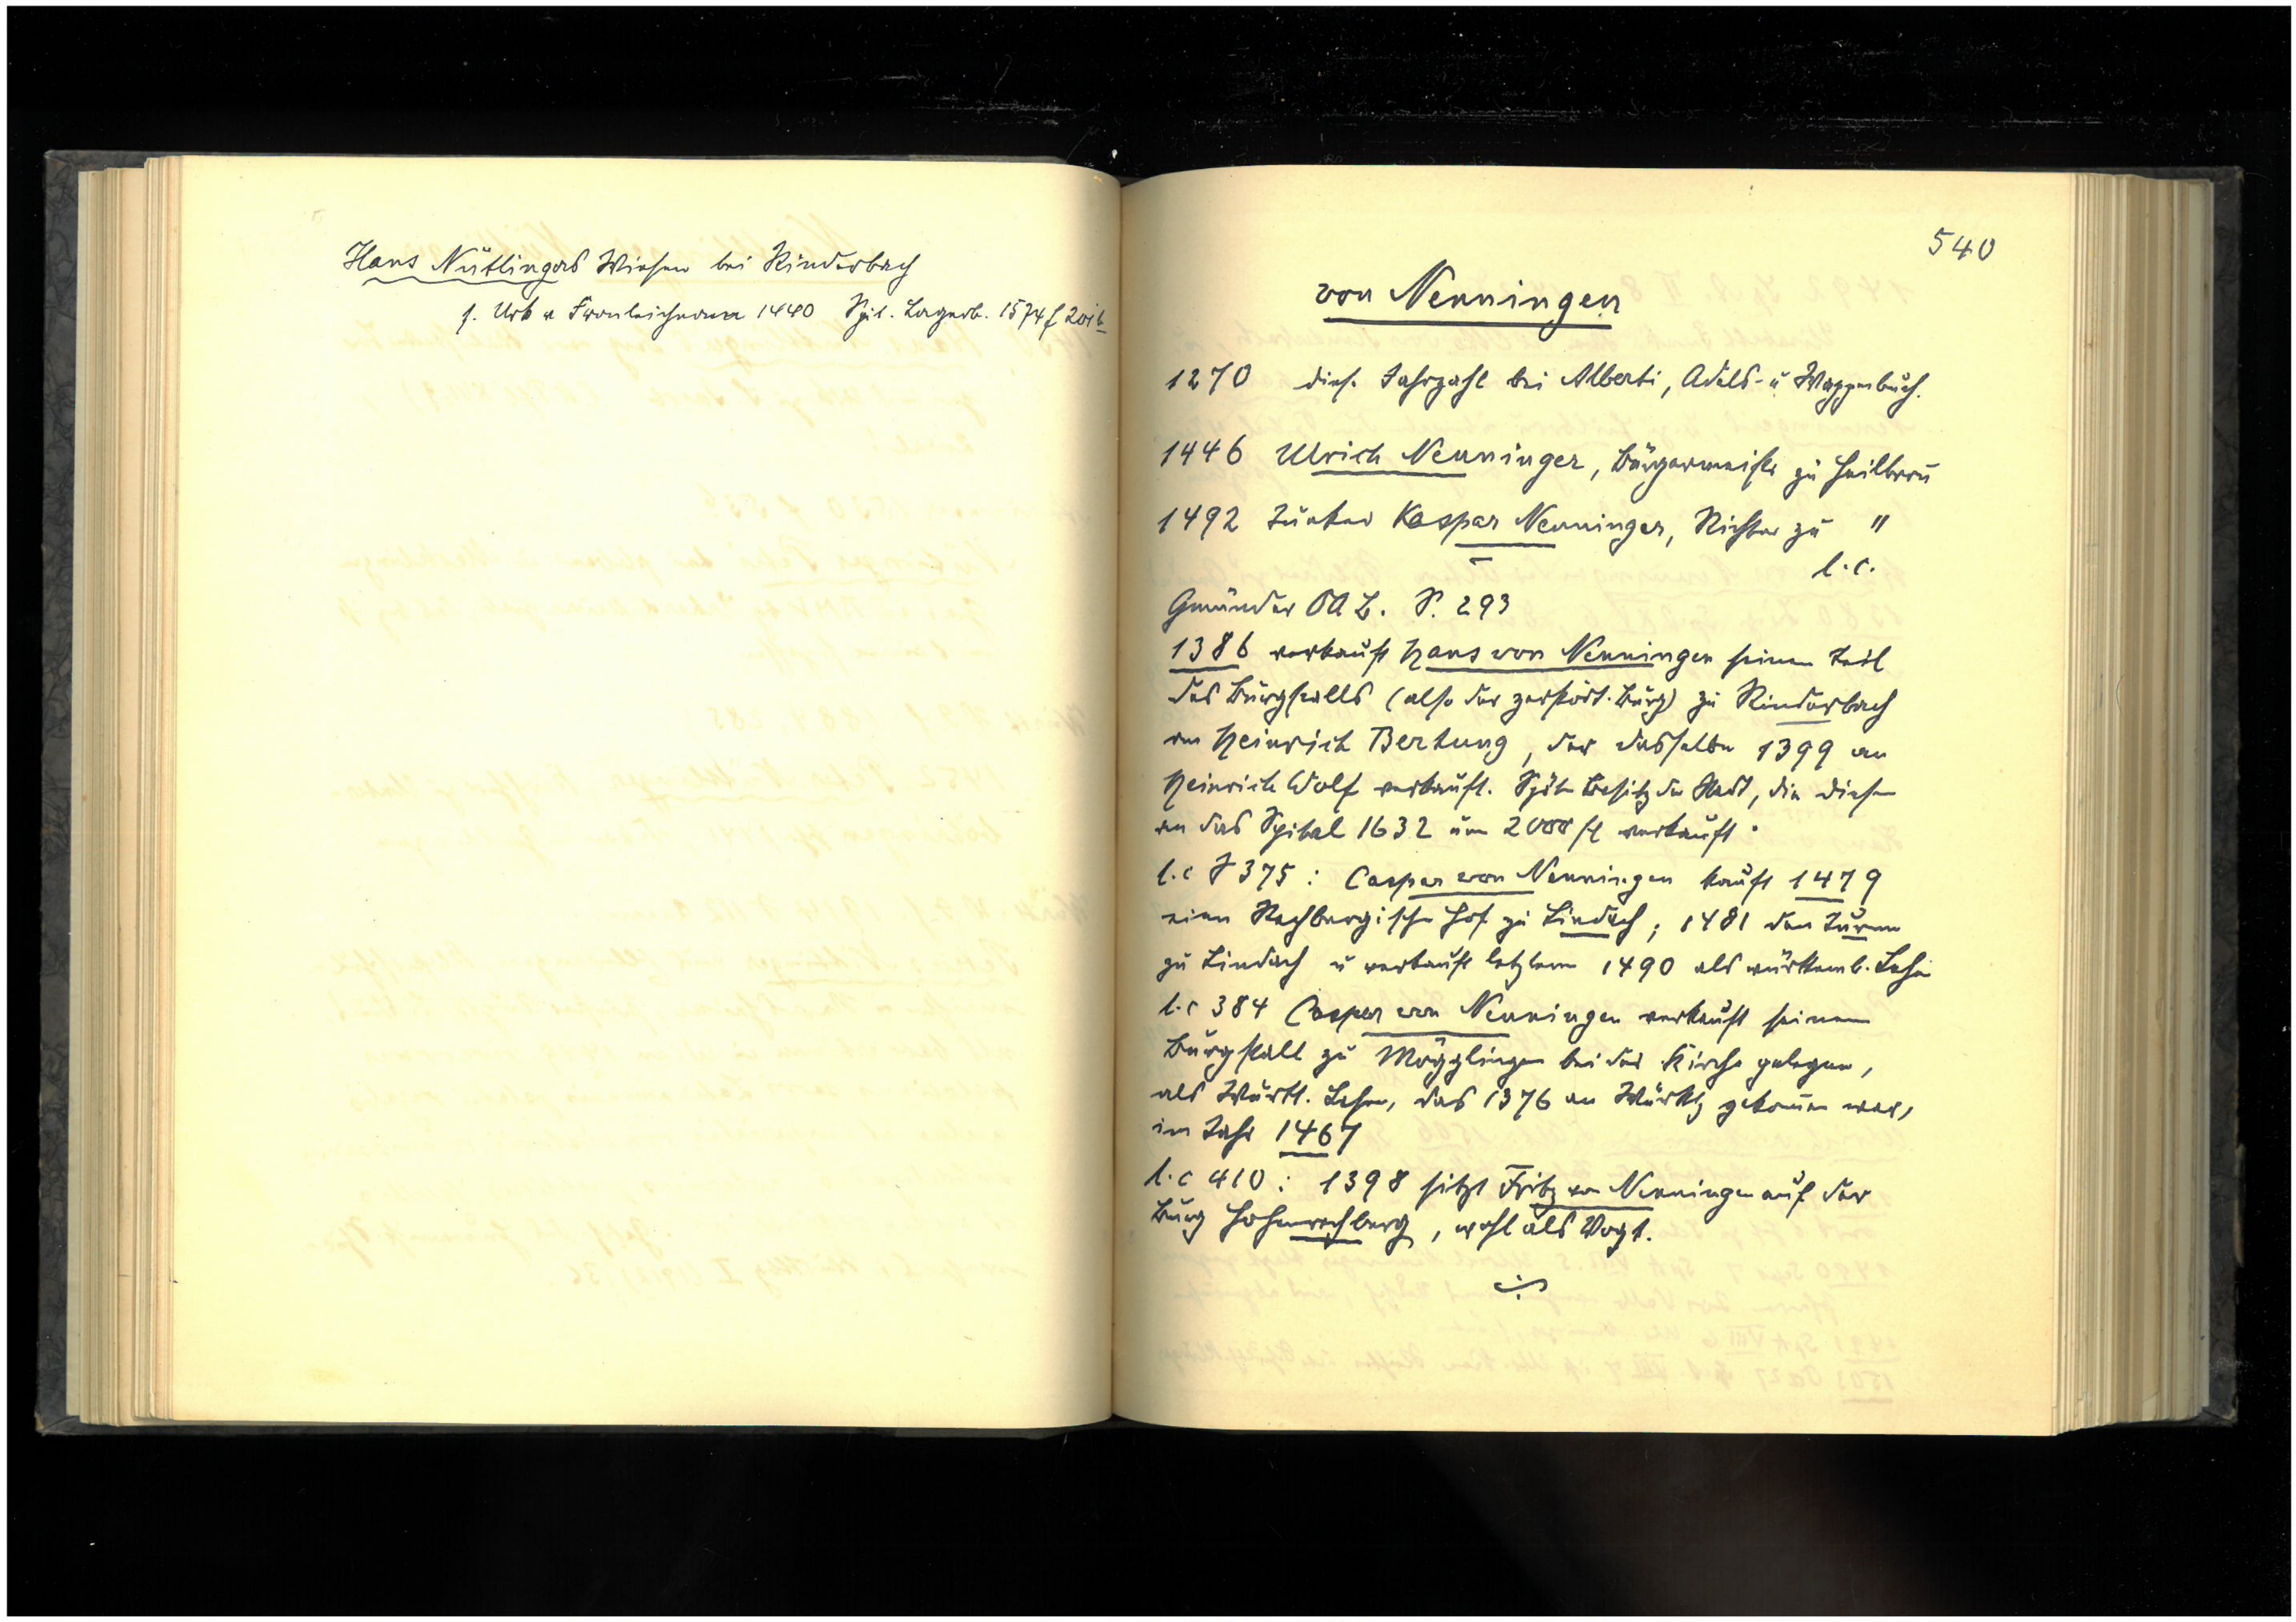 Hans Nütlingers Wiesen bei Rinderbach
s. Urk v Fronleichnam 1440 Spit. Lagerb. 1574 f 201b
540
von Nenningen
1270 dies. Jahrzahl bei Alberti, Adels- u Wappenbuch.
1446 Ulrich Nenninger, Bürgermeister zu Heilbron̄
1492 Junker Kaspar Nenninger, Richter zu "
l.c.
Gmünder OA B. S. 293
1386 verkauft Hans von Nenningen seinen Teil
des Burgstalls (also der zerstört. Burg) zu Rinderbach
an Heinrich Bertung, der dasselbe 1399 an
Heinrich Wolf verkauft. Später Besitz der Stadt, die diesen
an das Spital 1632 um 2000 fl verkauft.
l.c S 375: Caspar von Nenningen kauft 1479
einen Rechbergischen Hof zu Lindach; 1481 den Turm
zu Lindach u verkauft letztern 1490 als württemb. Lehen
l.c 384 Caspar von Nenningen verkauft seinen
Burgstall zu Mögglingen bei der Kirche gelegen,
als Württ. Lehen, das 1376 an Württbg gekom̄en war,
im Jahr 1467
l.c 410: 1398 sitzt Fritz von Nenningen auf der
Burg Hohenrechberg, wohl als Vogt.